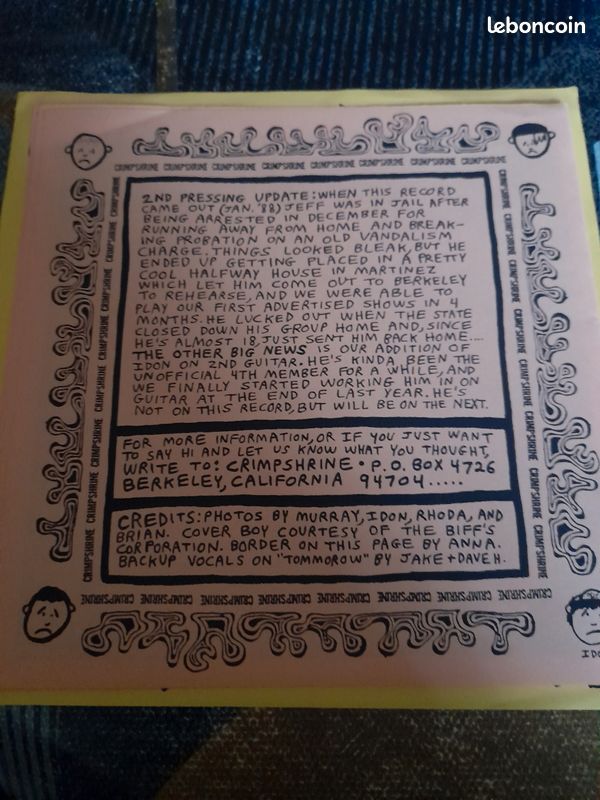 leboncoin
CRIMPSHRINE CRIMPSHRINE CRIMPSHRINE CRIMPSHRINE CRIMPSHRINE CRIMPSHRINE CRIMPSHRINE CRIMPSHRINE
2ND PRESSING UPDATE: WHEN THIS RECORD
CAME OUT (JAN. '88) JEFF WAS IN JAIL AFTER
BEING ARRESTED IN DECEMBER FOR
RUNNING AWAY FROM HOME AND BREAK-
ING PROBATION ON AN OLD VANDALISM
CHARGE. THINGS LOOKED BLEAK, BUT HE
ENDED UP GETTING PLACED IN A PRETTY
COOL HALFWAY HOUSE IN MARTINEZ
WHICH LET HIM COME OUT TO BERKELEY
TO REHEARSE, AND WE WERE ABLE TO
PLAY OUR FIRST ADVERTISED SHOWS IN 4
MONTHS. HE LUCKED OUT WHEN THE STATE
CLOSED DOWN HIS GROUP HOME AND, SINCE
HE'S ALMOST 18, JUST SENT HIM BACK HOME....
THE OTHER BIG NEWS IS OUR ADDITION OF
IDON ON 2ND GUITAR. HE'S KINDA BEEN THE
UNOFFICIAL 4TH MEMBER FOR A WHILE, AND
WE FINALLY STARTED WORKING HIM IN ON
GUITAR AT THE END OF LAST YEAR. HE'S
NOT ON THIS RECORD, BUT WILL BE ON THE NEXT.
FOR MORE INFORMATION, OR IF YOU JUST WANT
TO SAY HI AND LET US KNOW WHAT YOU THOUGHT,
WRITE TO: CRIMPSHRINE • P.O. BOX 4726
BERKELEY, CALIFORNIA 94704.....
CREDITS: PHOTOS BY MURRAY, IDON, RHODA, AND
BRIAN. COVER BOY COURTESY OF THE BIFF'S
CORPORATION. BORDER ON THIS PAGE BY ANNA.
BACKUP VOCALS ON "TOMMOROW" BY JAKE + DAVE H.
CRIMPSHRINE CRIMPSHRINE CRIMPSHRINE CRIMPSHRINE CRIMPSHRINE CRIMPSHRINE CRIMPSHRINE CRIMPSHRINE
CRIMPSHRINE CRIMPSHRINE CRIMPSHRINE CRIMPSHRINE CRIMPSHRINE CRIMPSHRINE CRIMPSHRINE CRIMPSHRINE
CRIMPSHRINE CRIMPSHRINE CRIMPSHRINE CRIMPSHRINE CRIMPSHRINE CRIMPSHRINE CRIMPSHRINE CRIMPSHRINE